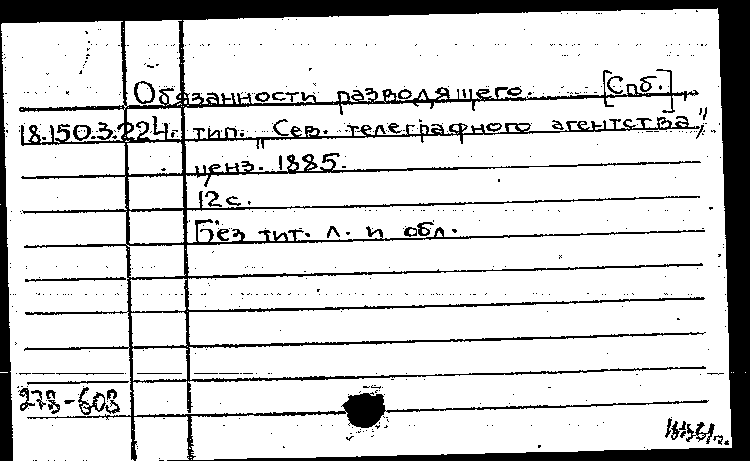 Обязанности разводящего. [Спб.],
18.150.3.224. тип. „Сев. телеграфного агентства",
ценз. 1885.
12 с.
Без тит. л. и обл.
278-608